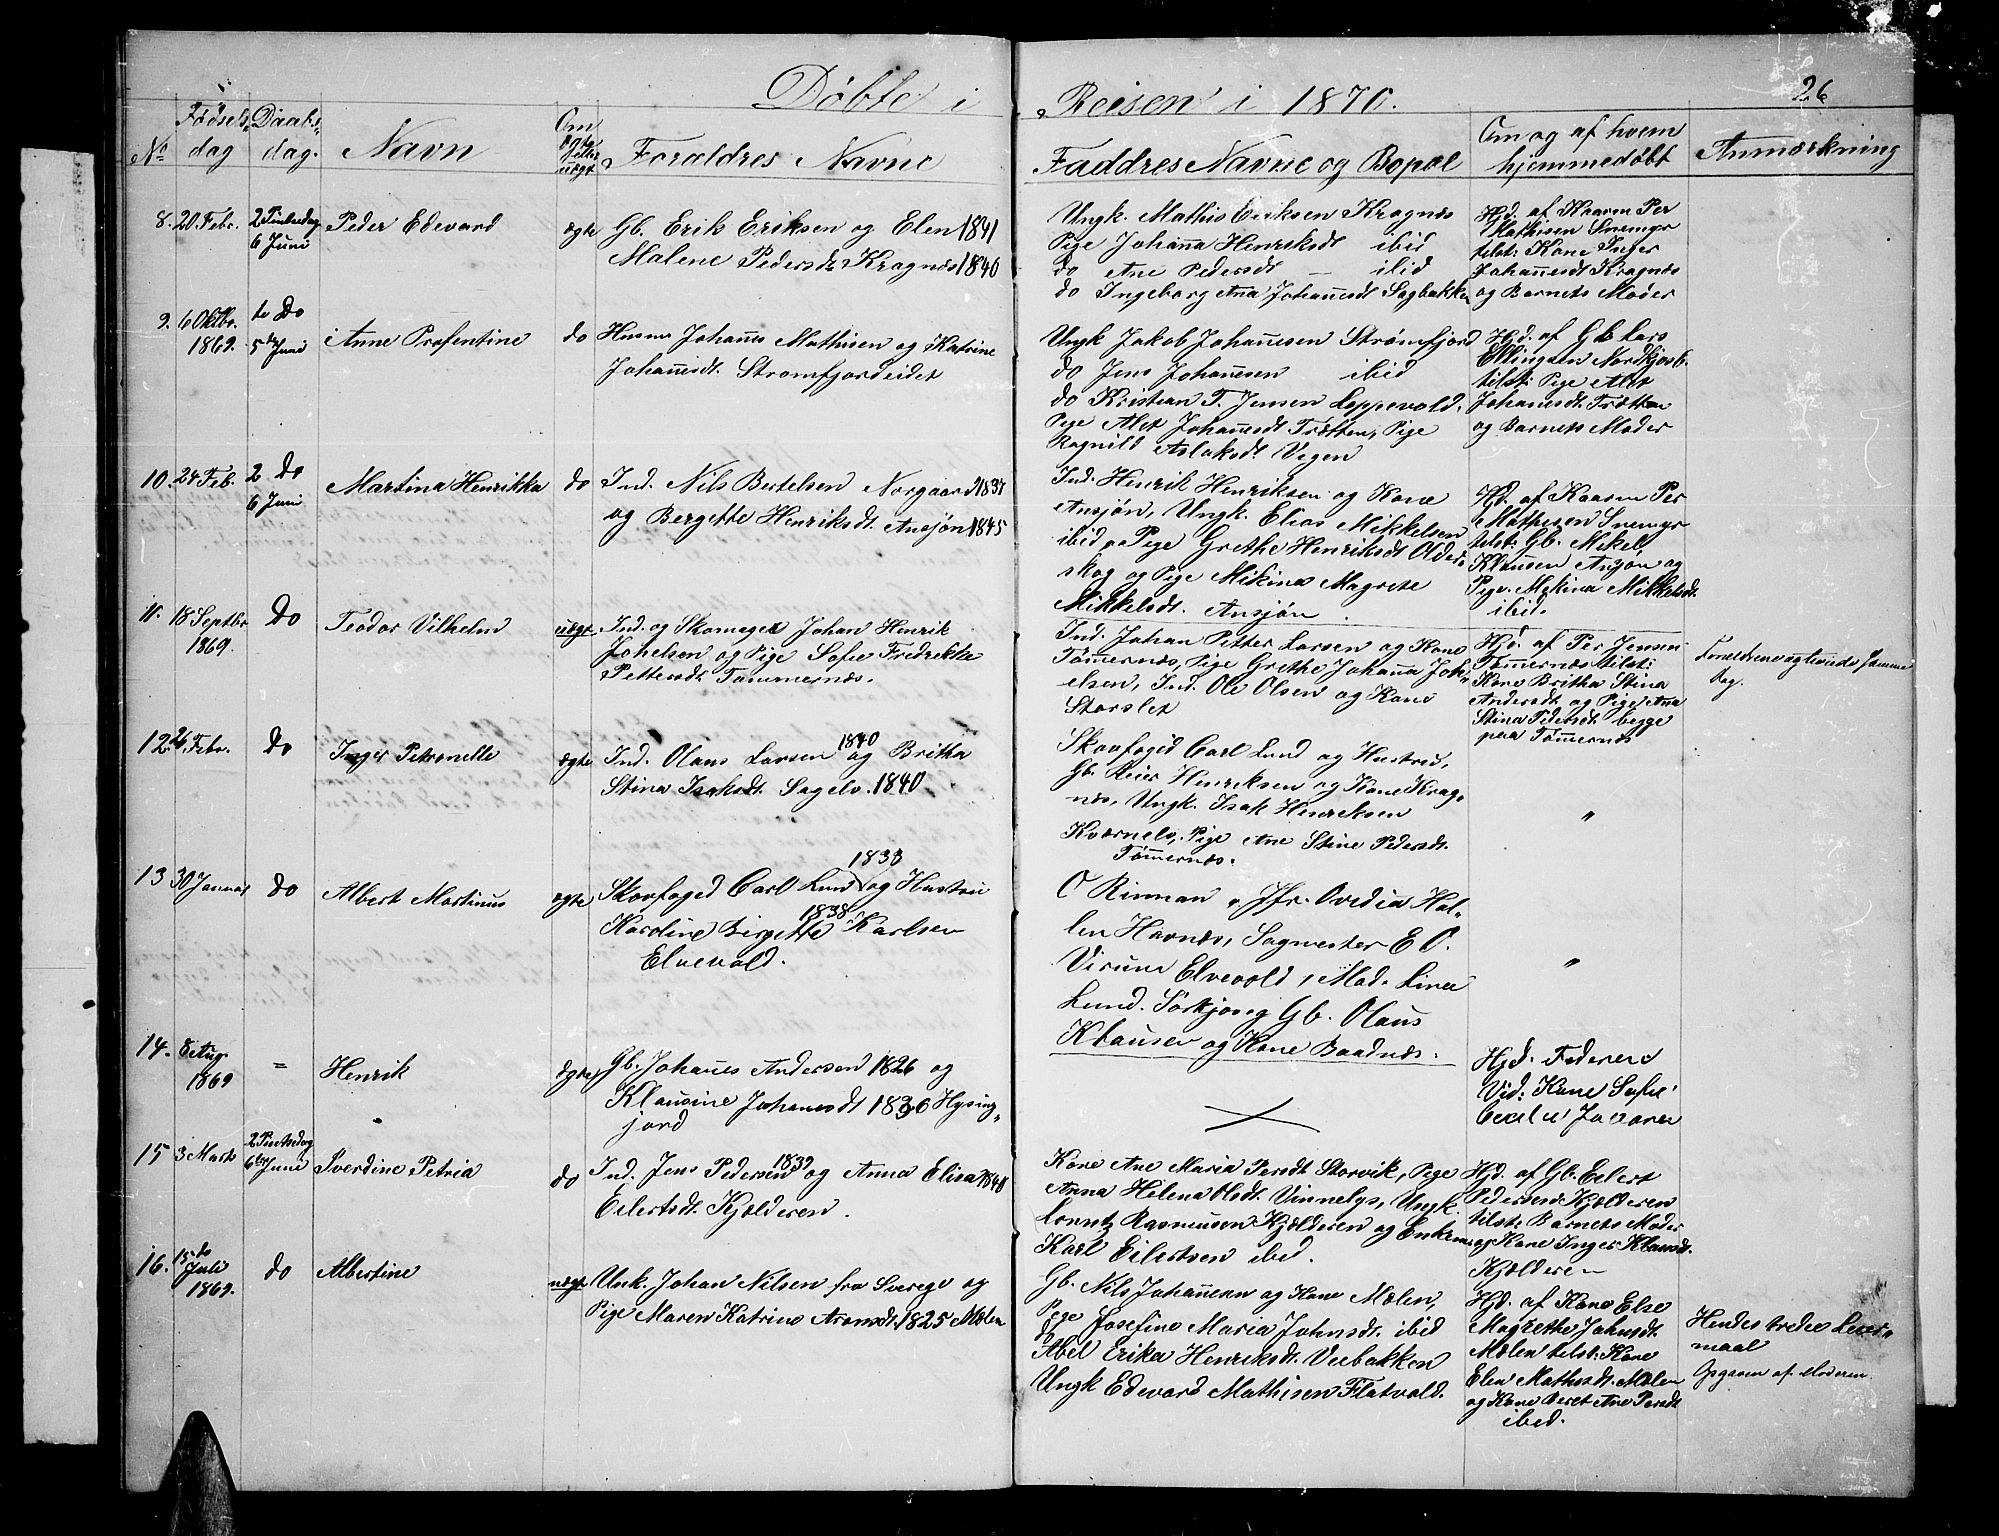 Døbte i Reisen i 1870.
26
No
Fødsels-
dag
Daabs-
dag.
Navn
Om
ægte
eller
uægt
Foraldres Navne
Faddres Navne og Bopæl
Om og af hvem
hjemmedøbt
Anmærkning
8. 20 Febr.
2 Pintsedag
6 Juni
Peder Edevard
ægte
Gb. Erik Eriksen og Elen 1841
Malene Pedersdt. Kragnæs 1840
Ungk. Mathis Eriksen Kragnæs
Pige Johanna Henriksdt ibid
do Ane Pedersdt — ibid
do Ingeborg Ana Johannesdt Sagbakken
Hjd. af Kaarm Per
Mathisen Snemyr
tilst: Kone Inger
Johannesdt Kragnæs
og Barnets Moder
9. 6 Oktbr.
1869.
te Do
5te Juni
Anne Profentine
do
Husm Johanes Mathisen og Katrine
Johannesdt. Strømfjordeidet
Ungk Jakob Johannesen Strømfjord
do Jens Johannesen ibid
do Kristian T. Jensen Loppevold.
Pige Alet Johannesdt Trætten, Pige
Ragnild Aslaksdt. Vegen
Hjd. af Gb Lars
Ellingsen Nordkjosb.
tilst: Pige Alet
Johannesdt. Trætten
og Barnets Moder
10. 24 Feb.
2 do
6 Juni
Martina Henrikka
do
Ind. Nils Bertelsen Norgaard 1837
og Bergette Henriksdt. Ansjøn 1845
Ind. Henrik Henriksen og Kone
Ansjøn, Ungk. Elias Mikkelsen
ibid, Pige Grethe Henriksdt Older-
skog og Pige Mikina Magrete
Mikkelsdt. Ansjøn.
Hjd. af Kaarm Per
Mathisen Snemyr
tilst: Gb. Mikel
Klausen Ansjøn og
Pige Mikina Mikkelsdt.
ibid.
11. 18 Septbr
1869.
Do
Teodor Vilhelm
uægt.
Ind. og Skomager Johan Henrik
Johelsen og Pige Sofie Fredrekke
Pettersdt Tømmernæs.
Ind. Johan Petter Larsen og Kone
Tømernæs, Pige Grethe Johanna Joh-
elsen, Ind. Ole Olsen og Kone
Storslet
Hjd. af Per Jensen
Tømernæs tilst:
Kone Britha Stina
Andersdt og Pige Ana
Stina Pedersdt begge
paa Tømernæs
Foreldrene ugteviede samme
Dag.
12. 26 Febr.
do
Inger Petronelle
ægte
Ind. Olaus Larsen 1840 og Britha
Stina Isaksdt. Sagelv. 1840
Skovfoged Carl Lund og Hustru,
Gb. Reier Henriksen og Kone Krag-
næs, Ungk. Isak Henriksen
Kvernelv, Pige Ane Stine Pedersdt.
Tømernæs.
"
13 30 Januar
do
Albert Martinus
ægte
Skovfoged Carl Lund 1833 og Hustru
Karoline Birgette 1838 Karlsen
Elvevold.
O Rinman, Jfr. Ovedia Hal-
len Havnæs, Sagmester E O.
Virum Elvevold, Mad. Lina
Lund. Sørkjosen Gb. Olaus
Klausen og Kone Baadnæs.
"
14. 8 Aug.
1869
=
Henrik
ægte
Gb. Johanes Andersen 1826 og
Klausine Johanesdt 1830 Hysing-
jord
Hjd. Federen
Vid: Kone Sofie
15 3 Marts
2 Pintsedag
6te Juni
Sverdine Petria
do
Ind. Jens Pedersen 1839 og Anna Elisa 1840
Eilertsdt. Kjælderen.
Kone Ane Maria Persdt Storvik, Pige
Anna Helena Olsdt. Vinnelys, Ungk.
Lorentz Rasmusen Kjælderen og Enkem
Karl Eilertsen ibid.
Hjd. af Gb. Eilert
Pedersen Kjælderen
tilst: Barnets Moder
og Kone Inger Klausdt.
Kjælderen
16. 15 do
Juli
1869.
do
Albertine
uægt
Unk. Johan Nilsen fra Sverege og
Pige Maren Katrine Aronsdt. 1825 Mælen
Gb. Nils Johannesen og Kone Mælen,
Pige Josefine Maria Johnsdt. ibid
do Abel Erika Henriksdt. Veebakken
Ungk Edevard Mathisen Flatvold.
Hjd. af Kone Else
Magrethe Johnsdt.
Mælen tilst: Kone
Elen Mathisdt. Mælen
og Kone Beret Ane Persdt
ibid.
Hendes tredie Leier-
maal
Opgaven af Moderen